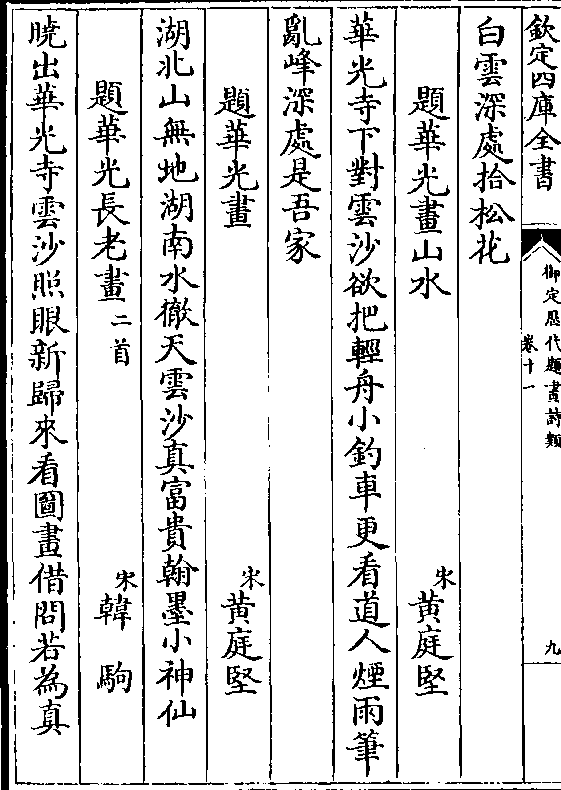 欽定四庫全書
御定歷代題畫詩類
卷十一
九
白雲深處拾松花
題華光畫山水
宋
黃庭堅
華光寺下對雲沙欲把輕舟小釣車更看道人煙雨筆
亂峰深處是吾家
題華光畫
宋
黃庭堅
湖北山無地湖南水徹天雲沙真富貴翰墨小神仙
題華光長老畫
二首
宋
韓駒
曉出華光寺雲沙照眼新歸來看圖畫借問若為真